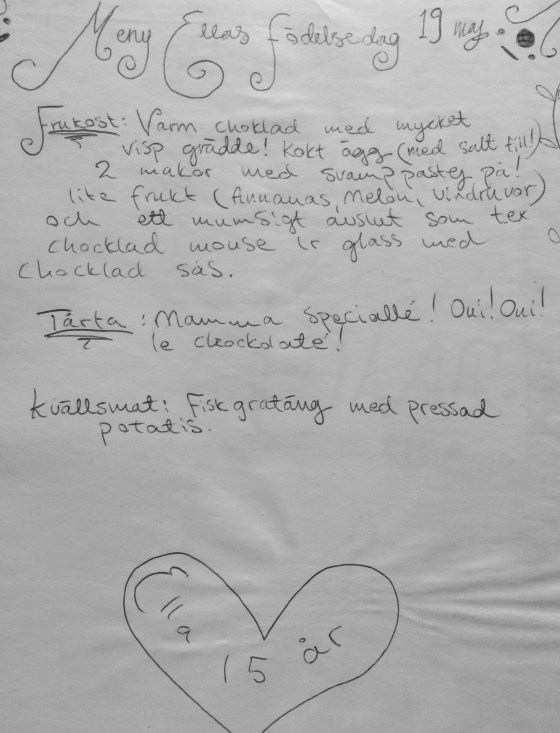 Meny Ellas födelsedag 19 maj
Frukost: Varm choklad med mycket
visp grädde! Kokt ägg (med salt till!)
2 makor med svamppastej på!
lite frukt (Annanas, Melon, vindruvor)
och ett mumsigt avslut som tex
chocklad mouse lr glass med
chocklad sås.
Tårta: Mamma speciallé! Oui! Oui!
le chockolaté!
kvällsmat: Fiskgratäng med pressad
potatis.
Ella
15 år